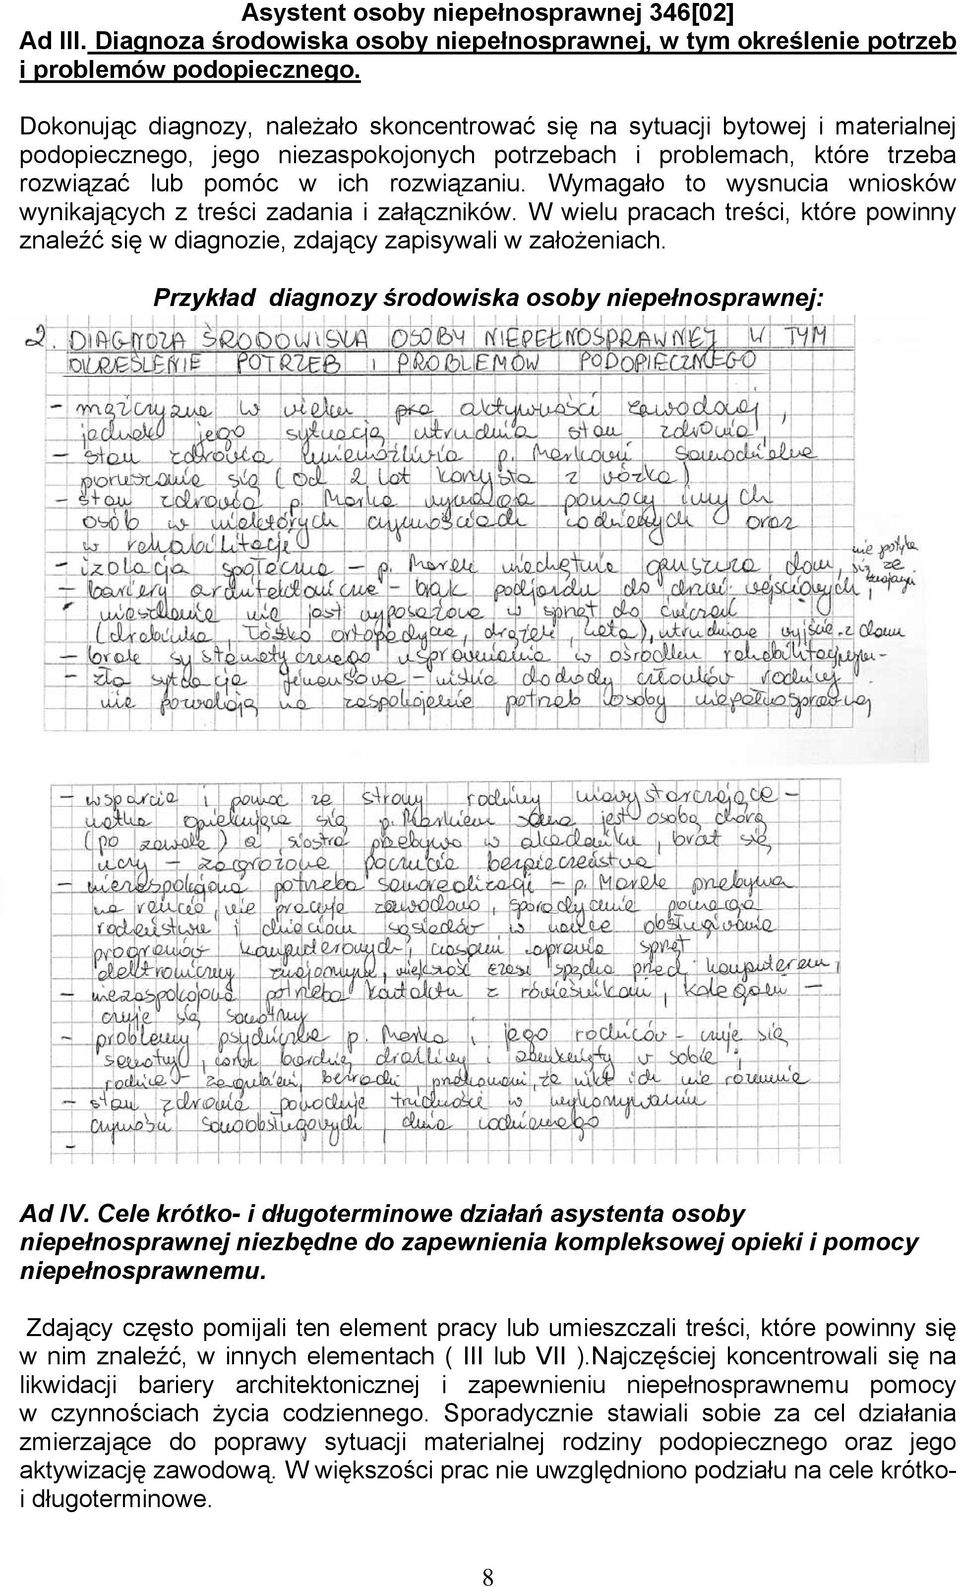 Asystent osoby niepełnosprawnej 346[02]
Ad III. Diagnoza środowiska osoby niepełnosprawnej, w tym określenie potrzeb
i problemów podopiecznego.
Dokonując diagnozy, należało skoncentrować się na sytuacji bytowej i materialnej
podopiecznego, jego niezaspokojonych potrzebach i problemach, które trzeba
rozwiązać lub pomóc w ich rozwiązaniu. Wymagało to wysnucia wniosków
wynikających z treści zadania i załączników. W wielu pracach treści, które powinny
znaleźć się w diagnozie, zdający zapisywali w założeniach.
Przykład diagnozy środowiska osoby niepełnosprawnej:
2. DIAGNOZA ŚRODOWISKA OSOBY NIEPEŁNOSPRAWNEJ W TYM
OKREŚLENIE POTRZEB I PROBLEMÓW PODOPIECZNEGO
- mężczyzna w wieku aktywności zawodowej,
jednak jego sytuację utrudnia stan zdrowia
- stan zdrowia uniemożliwia p. Markowi samodzielne
poruszanie się (od 2 lat korzysta z wózka)
- stan zdrowia p. Marka wymaga pomocy innych
osób w niektórych czynnościach codziennych oraz
w rehabilitacji
- izolacja społeczna - p. Marek niechętnie opuszcza dom, nie spotyka się ze znajomymi
- bariery architektoniczne - brak podjazdu do drzwi wejściowych,
mieszkanie nie jest wyposażone w sprzęt do ćwiczeń
(drabinka, łóżko ortopedyczne, drążek, mata), utrudnione wyjście z domu
- brak systematycznego usprawniania w ośrodku rehabilitacyjnym
- zła sytuacja finansowa - niskie dochody członków rodziny
nie pozwalają na zaspokojenie potrzeb osoby niepełnosprawnej
- wsparcie i pomoc ze strony rodziny niewystarczające -
matka opiekująca się p. Markiem sama jest osobą chorą
(po zawale) a siostra przebywa w akademiku, brat się
uczy - zagrożone poczucie bezpieczeństwa
- niezaspokojona potrzeba samorealizacji - p. Marek przebywa
na rencie, nie pracuje zawodowo, sporadycznie pomaga
rodzeństwu i dzieciom sąsiadów w nauce obsługiwania
programów komputerowych, czasami naprawia sprzęt
elektroniczny znajomym, większość czasu spędza przed komputerem,
- niezaspokojona potrzeba kontaktu z rówieśnikami, kolegami -
czuje się samotny
- problemy psychiczne p. Marka i jego rodziców - czuje się
samotny, coraz bardziej drażliwy i zamknięty w sobie;
rodzice - zagubieni, bezradni, przekonani, że nikt ich nie rozumie
- stan zdrowia powoduje trudności w wykonywaniu
czynności samoobsługowych, dnia codziennego
-
Ad IV. Cele krótko- i długoterminowe działań asystenta osoby
niepełnosprawnej niezbędne do zapewnienia kompleksowej opieki i pomocy
niepełnosprawnemu.
Zdający często pomijali ten element pracy lub umieszczali treści, które powinny się
w nim znaleźć, w innych elementach ( III lub VII ).Najczęściej koncentrowali się na
likwidacji bariery architektonicznej i zapewnieniu niepełnosprawnemu pomocy
w czynnościach życia codziennego. Sporadycznie stawiali sobie za cel działania
zmierzające do poprawy sytuacji materialnej rodziny podopiecznego oraz jego
aktywizację zawodową. W większości prac nie uwzględniono podziału na cele krótko-
i długoterminowe.
8